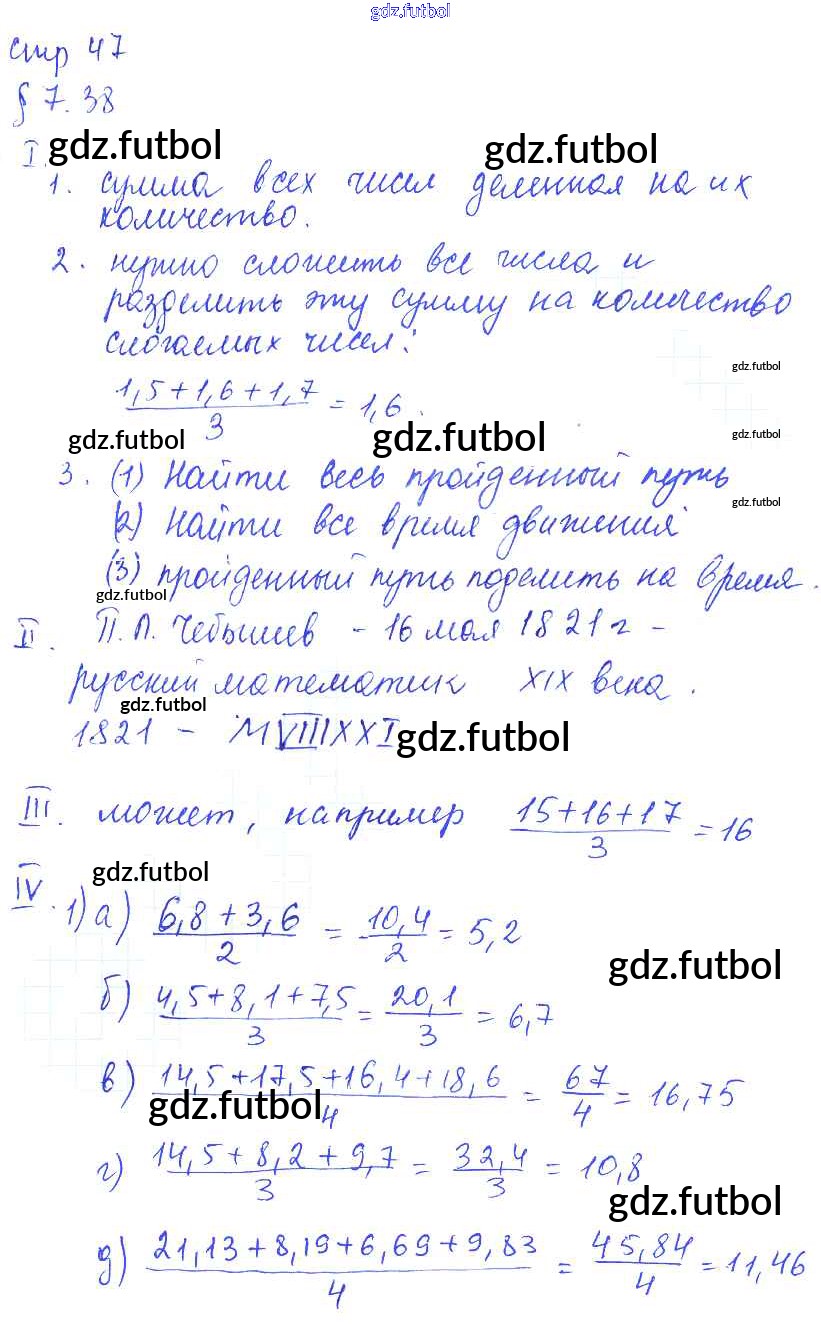 gdz.futbol
стр 47
§ 7.38
gdz.futbol gdz.futbol
I.
1. сумма всех чисел деленная на их
количество.
2. нужно сложить все числа и
разделить эту сумму на количество
слогаемых чисел:
gdz.futbol
(1,5+1,6+1,7)/3 = 1,6.
gdz.futbol gdz.futbol gdz.futbol
3. (1) Найти весь пройденный путь
gdz.futbol
(2) Найти все время движения
(3) пройденный путь поделить на время.
gdz.futbol
II. П.Л. Чебышев - 16 мая 1821 г -
русский математик XIX века.
gdz.futbol
1821 - MVIIIXXI
gdz.futbol
III. может, например (15+16+17)/3 = 16
gdz.futbol
IV. 1) а) (6,8+3,6)/2 = 10,4/2 = 5,2
gdz.futbol
б) (4,5+8,1+7,5)/3 = 20,1/3 = 6,7
в) (14,5+17,5+16,4+18,6)/4 = 67/4 = 16,75
gdz.futbol
г) (14,5+8,2+9,7)/3 = 32,4/3 = 10,8
gdz.futbol
д) (21,13+8,19+6,69+9,83)/4 = 45,84/4 = 11,46